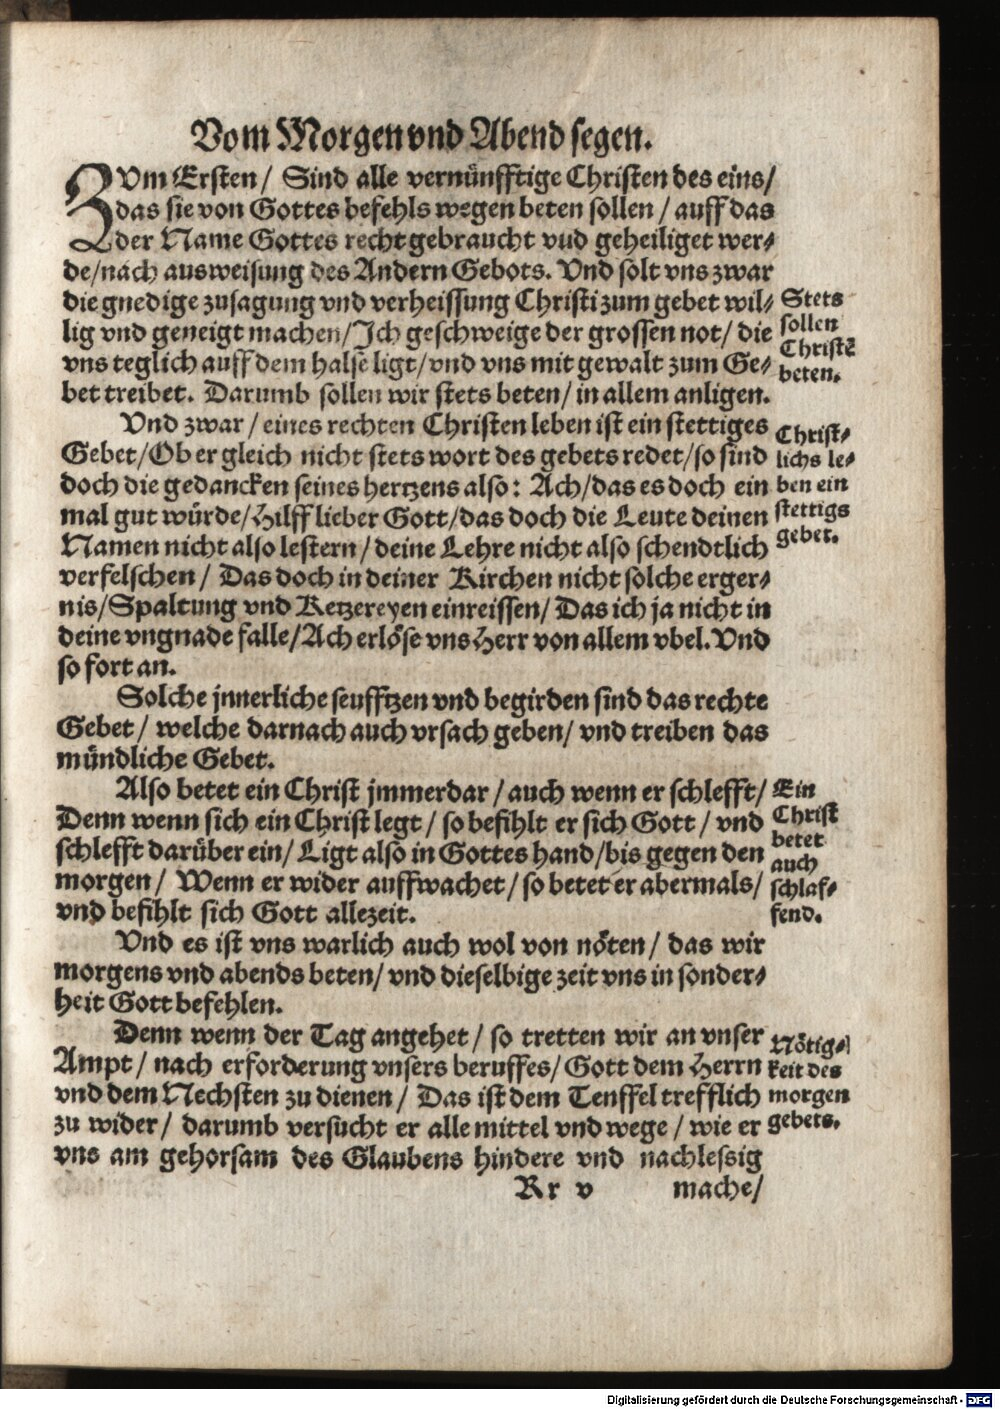 Vom Morgen vnd Abend segen.
ZVm Ersten/ Sind alle vernünfftige Christen des eins/
das sie von Gottes befehls wegen beten sollen/ auff das
der Name Gottes recht gebraucht vud geheiliget wer-
de/nach ausweisung des Andern Gebots. Vnd solt vns zwar
die gnedige zusagung vnd verheissung Christi zum gebet wil-
lig vnd geneigt machen/Ich geschweige der grossen not/ die
vns teglich auff dem halse ligt/vnd vns mit gewalt zum Ge-
bet treibet. Darumb sollen wir stets beten/ in allem anligen.
Stets
sollen
Christē
beten.
Vnd zwar/ eines rechten Christen leben ist ein stettiges
Gebet/Ob er gleich nicht stets wort des gebets redet/so sind
doch die gedancken seines hertzens also: Ach/das es doch ein
mal gut würde/Hilff lieber Gott/das doch die Leute deinen
Namen nicht also lestern/ deine Lehre nicht also schendtlich
verfelschen/ Das doch in deiner Kirchen nicht solche erger-
nis/Spaltung vnd Ketzereyen einreissen/ Das ich ja nicht in
deine vngnade falle/Ach erlöse vns Herr von allem vbel. Vnd
so fort an.
Christ-
lichs le-
ben ein
stettigs
gebet.
Solche jnnerliche seufftzen vnd begirden sind das rechte
Gebet/ welche darnach auch vrsach geben/ vnd treiben das
mündliche Gebet.
Also betet ein Christ jmmerdar/ auch wenn er schlefft/
Denn wenn sich ein Christ legt/ so befihlt er sich Gott/ vnd
schlefft darüber ein/ Ligt also in Gottes hand/bis gegen den
morgen/ Wenn er wider auffwachet/ so betet er abermals/
vnd befihlt sich Gott allezeit.
Ein
Christ
betet
auch
schlaf-
fend.
Vnd es ist vns warlich auch wol von nöten/ das wir
morgens vnd abends beten/ vnd dieselbige zeit vns in sonder-
heit Gott befehlen.
Denn wenn der Tag angehet/ so tretten wir an vnser
Ampt/ nach erforderung vnsers beruffes/ Gott dem Herrn
vnd dem Nechsten zu dienen/ Das ist dem Tenffel trefflich
zu wider/ darumb versucht er alle mittel vnd wege/ wie er
vns am gehorsam des Glaubens hindere vnd nachlessig
Nötig-
keit des
morgen
gebets.
Rr v
mache/
Digitalisierung gefördert durch die Deutsche Forschungsgemeinschaft - DFG